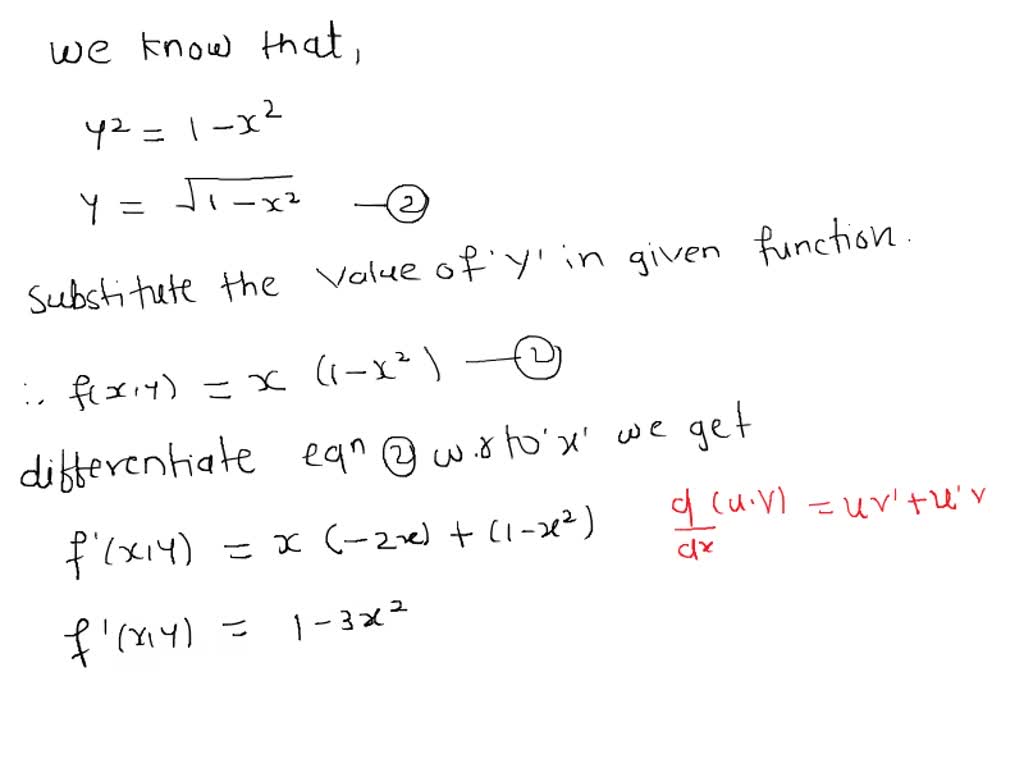 we know that,
y² = 1 - x²
y = √(1 - x²) —②
substitute the value of 'y' in given function.
∴ f(x,y) = x (1 - x²) —②
differentiate eqⁿ ② w.r to 'x' we get
f'(x,y) = x (-2x) + (1 - x²)
d/dx (u.v) = uv' + u'v
f'(x,y) = 1 - 3x²